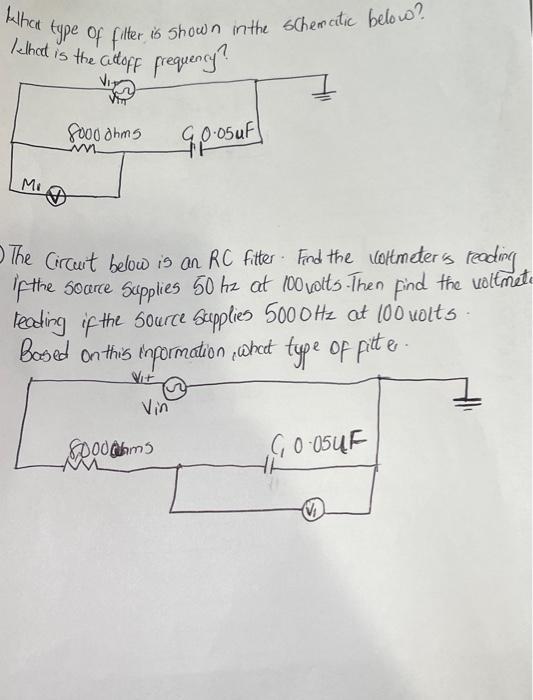 What type of filter is shown in the schematic below?
What is the cutoff frequency?
V1+
Vin
8000 ohms
C 0.05uF
M1
V
The Circuit below is an RC filter. Find the voltmeter's reading
if the source supplies 50 hz at 100 volts. Then find the voltmete
reading if the source supplies 5000Hz at 100 volts.
Based on this information, what type of fitter.
V1+
Vin
8000 ohms
C1 0.05uF
V1